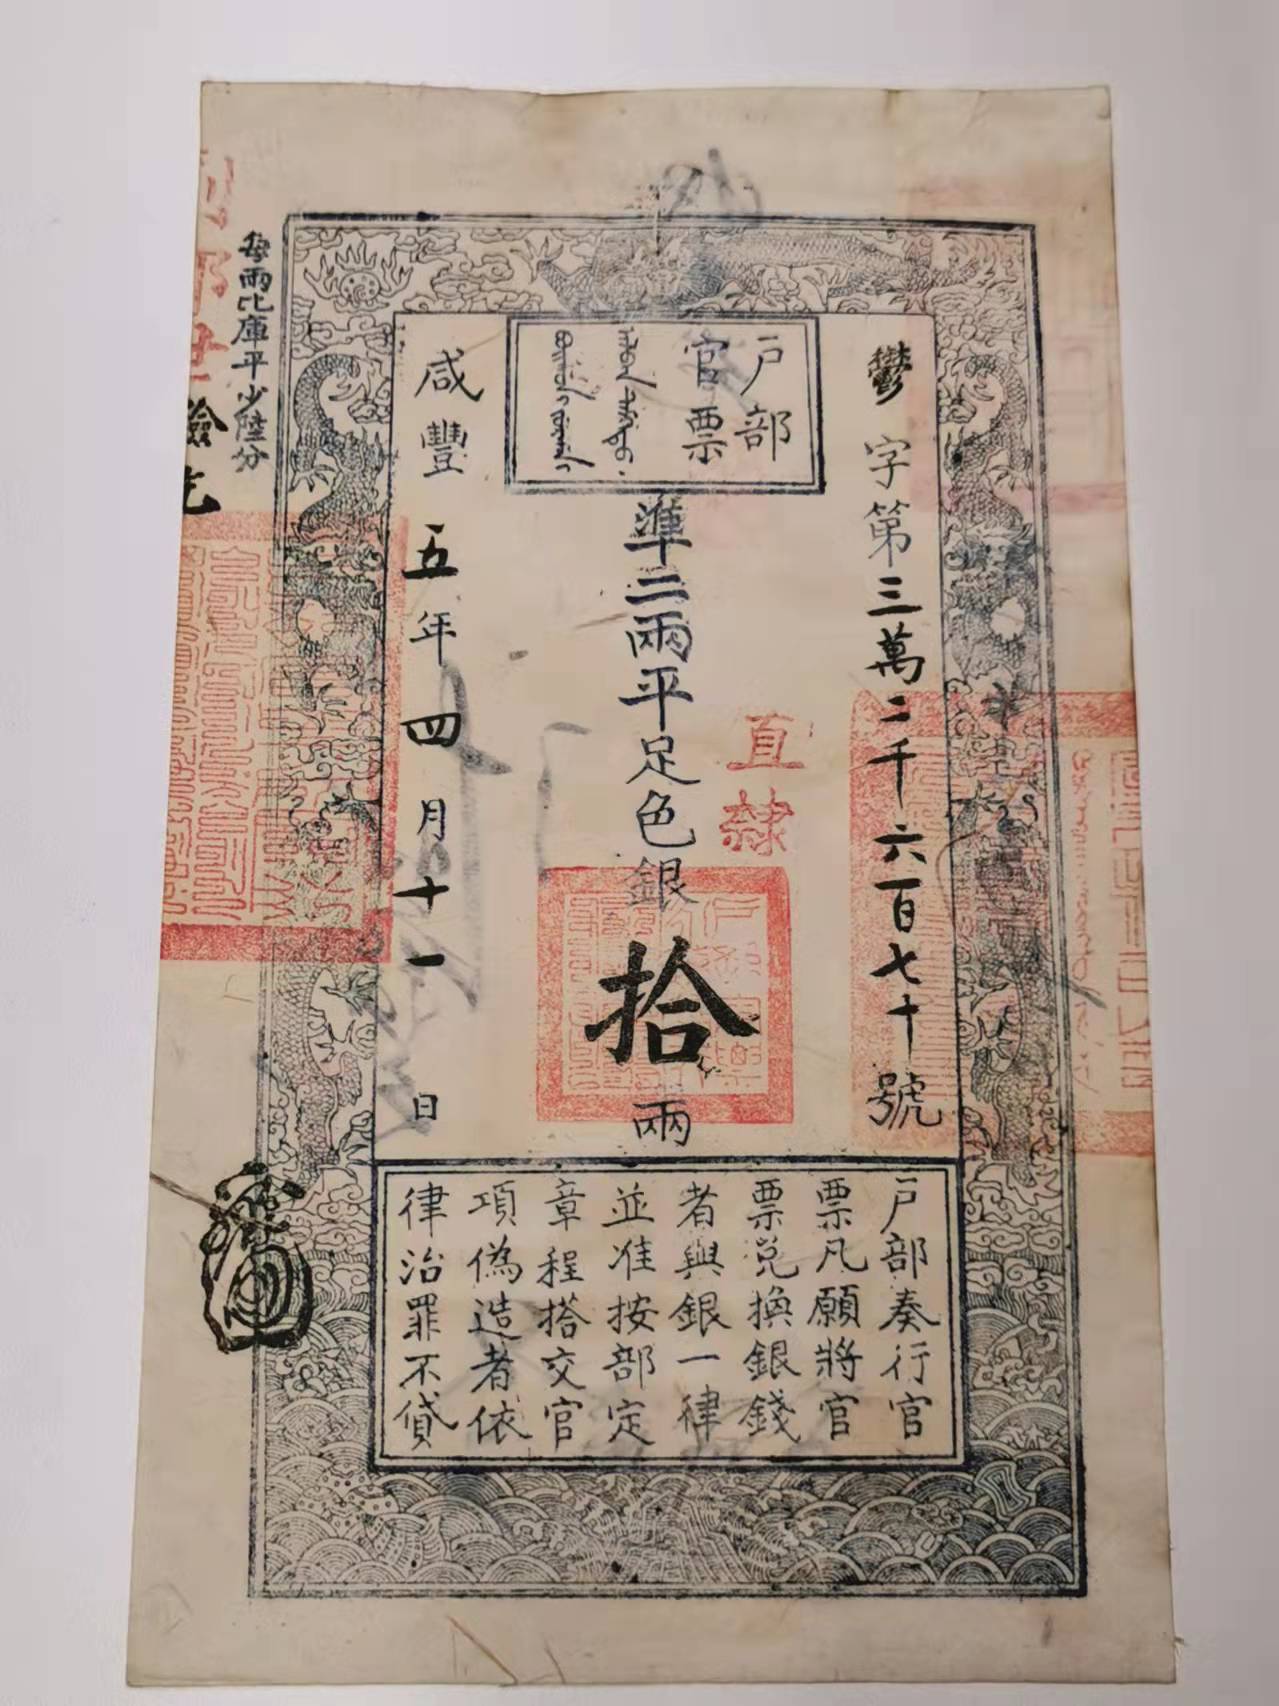 戶部
官票
鬱字第三萬二千六百七十號
準二兩平足色銀拾兩
直隸
咸豐五年四月十一日
每兩比庫平少陸分
戶部奏行官
票凡願將官
票兌換銀錢
者與銀一律
並准按部定
章程搭交官
項偽造者依
律治罪不貸